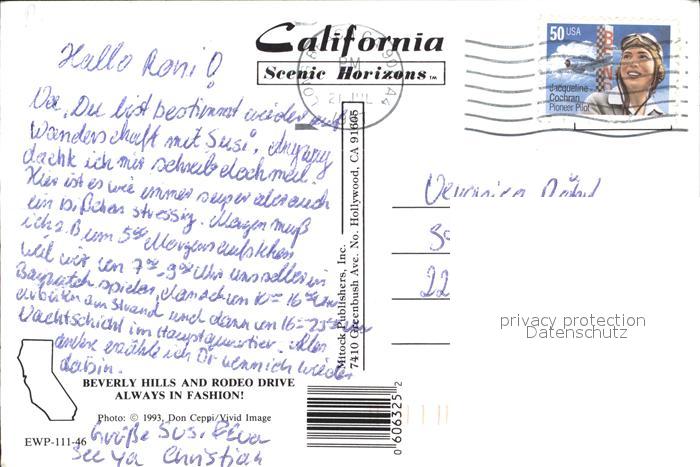 California
Scenic Horizons™
PM
50 USA
Jacqueline
Cochran
Pioneer Pilot
Hallo Roni!
Du bist bestimmt wieder auf
Wanderschaft mit Susi,
dachte ich mir schreib doch mal.
Hier ist es wie immer super aber auch
ein bißchen stressig. Morgen muß
ich z.B um 5°° Morgens aufstehen
weil wir von 7°°-9°° Uhr uns selber in
Baywatch spielen, dann von 10°°-16°° Uhr
arbeiten am Strand und dann von 16°°-
Wachtschicht im Hauptquartier. Alles
andere erzähle ich Dir wenn ich wieder
da bin.
Mitock Publishers, Inc.
7410 Greenbush Ave. No. Hollywood, CA 91605
Veronica
22
privacy protection
Datenschutz
BEVERLY HILLS AND RODEO DRIVE
ALWAYS IN FASHION!
Photo: © 1993, Don Ceppi/Vivid Image
EWP-111-46
Grüße Susi
See Ya Christian
0 606325 2